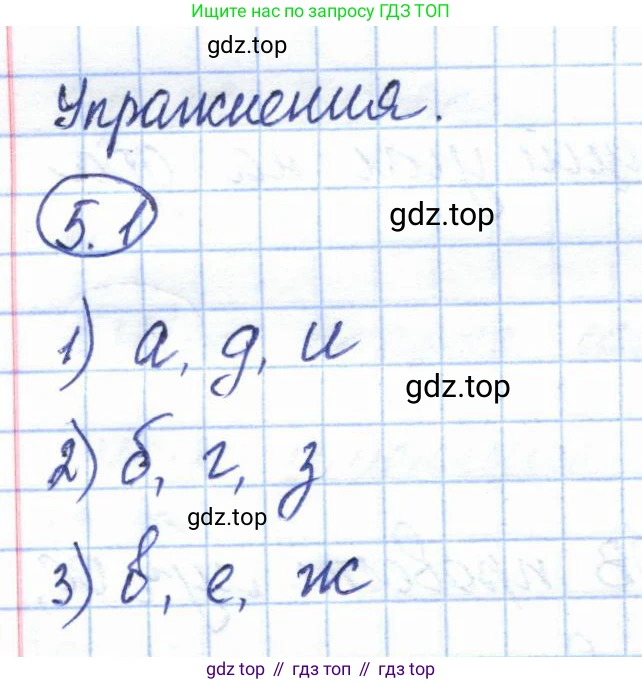 Ищите нас по запросу ГДЗ ТОП
gdz.top
Упражнения.
5.1
gdz.top
1) а, д, и
gdz.top
2) б, г, з
gdz.top
3) в, е, ж
gdz.top // гдз топ // gdz.top